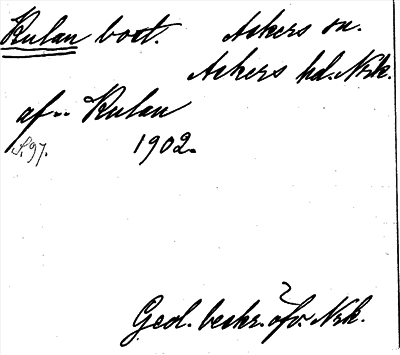 Kulan bost. Askers sn.
Askers hd. Nrk.
af.. Kulan
S. 97. 1902.
Geol. beskr. öfv. Nrk.